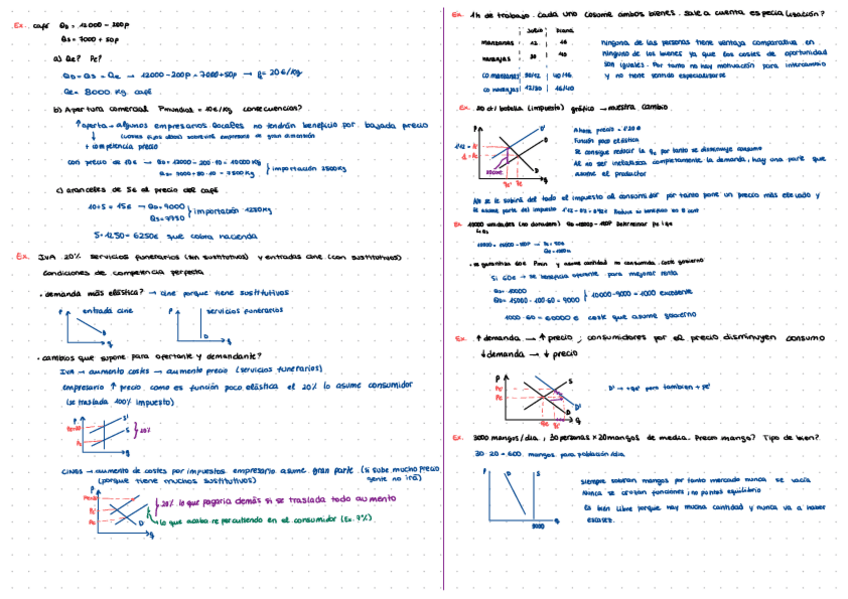 Ex. café Qd = 12000 - 200p
Qs = 7000 + 50p
a) Qe? Pe?
Qd = Qs = Qe → 12000 - 200p = 7000 + 50p → p = 20€/kg
Qe = 8000 kg café
b) Apertura comercial Pmundial = 10€/kg consecuencias?
↑oferta → algunos empresarios locales no tendrán beneficio por bajada precio
+ competencia precio
con precio de 10€ → Qd = 12000 - 200·10 = 10000 kg
} importación 2500kg
c) aranceles de 5€ al precio del café
10+5 = 15€ → Qd = 9000
Qs = 7750
} importación 1250kg
5·1250 = 6250€ que cobra hacienda
Ex. IVA 20% servicios funerarios (sin sustitutivos) y entradas cine (con sustitutivos)
condiciones de competencia perfecta
• demanda más elástica? → cine porque tiene sustitutivos
entrada cine
servicios funerarios
P
D
q
• cambios que supone para ofertante y demandante?
IVA → aumento costes → aumento precio (servicios funerarios)
empresario ↑ precio como es función poco elástica el 20% lo asume consumidor
(se traslada 100% impuesto)
} 20%
CINES → aumento de costes por impuestos empresario asume gran parte (si sube mucho precio
(porque tiene muchos sustitutivos) gente no irá)
} 20% lo que pagaría demás si se traslada todo aumento
lo que acaba repercutiendo en el consumidor (Ex. 7%)
Ex. 1h de trabajo. Cada uno cosume ambos bienes. Sale a cuenta especialización?
manzanas 12 16
naranjas 30 40
co manzanas 30/12 40/16
co naranjas 12/30 16/40
ninguna de las personas tiene ventaja comparativa en
ninguno de los bienes ya que los costes de oportunidad
son iguales. Por tanto no hay motivación para intercambio
y no tiene sentido especializarse
Ex. 20 ct/ botella (impuesto) gráfico → muestra cambio
Función poco elástica
Se consigue reducir la qe por tanto se disminuye consumo
Al no ser inelástica completamente la demanda, hay una parte que
asume el productor
No se le subirá del todo el impuesto al consumidor por tanto pone un precio más elevado y
• se garantiza 60€ Pmin y asume cantidad no consumida. coste gobierno
Si 60€ → se beneficia oferente para mejorar renta
Qd = 10000
} 10000 - 9000 = 1000 excedente
1000·60 = 60000 € coste que asume gobierno
Ex. ↑ demanda → ↑ precio ; consumidores por el precio disminuyen consumo
↓ demanda → ↓ precio
D' → +qe' pero también + pe'
Ex. 3000 mangos/día, 30 personas × 20 mangos de media. Precio mango? Tipo de bien?
30·20 = 600 mangos para población/día
P
D
S
3000
q
siempre sobran mangos por tanto mercado nunca se vacía
Nunca se cruzan funciones ; no puntos equilibrio
Es bien libre porque hay mucha cantidad y nunca va a haber
escasez.